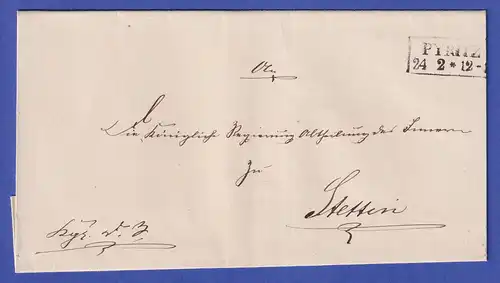 PYRITZ
24 2 * 12-
An
Die Königliche Regierung Abtheilung des Innern
Zu
Stettin